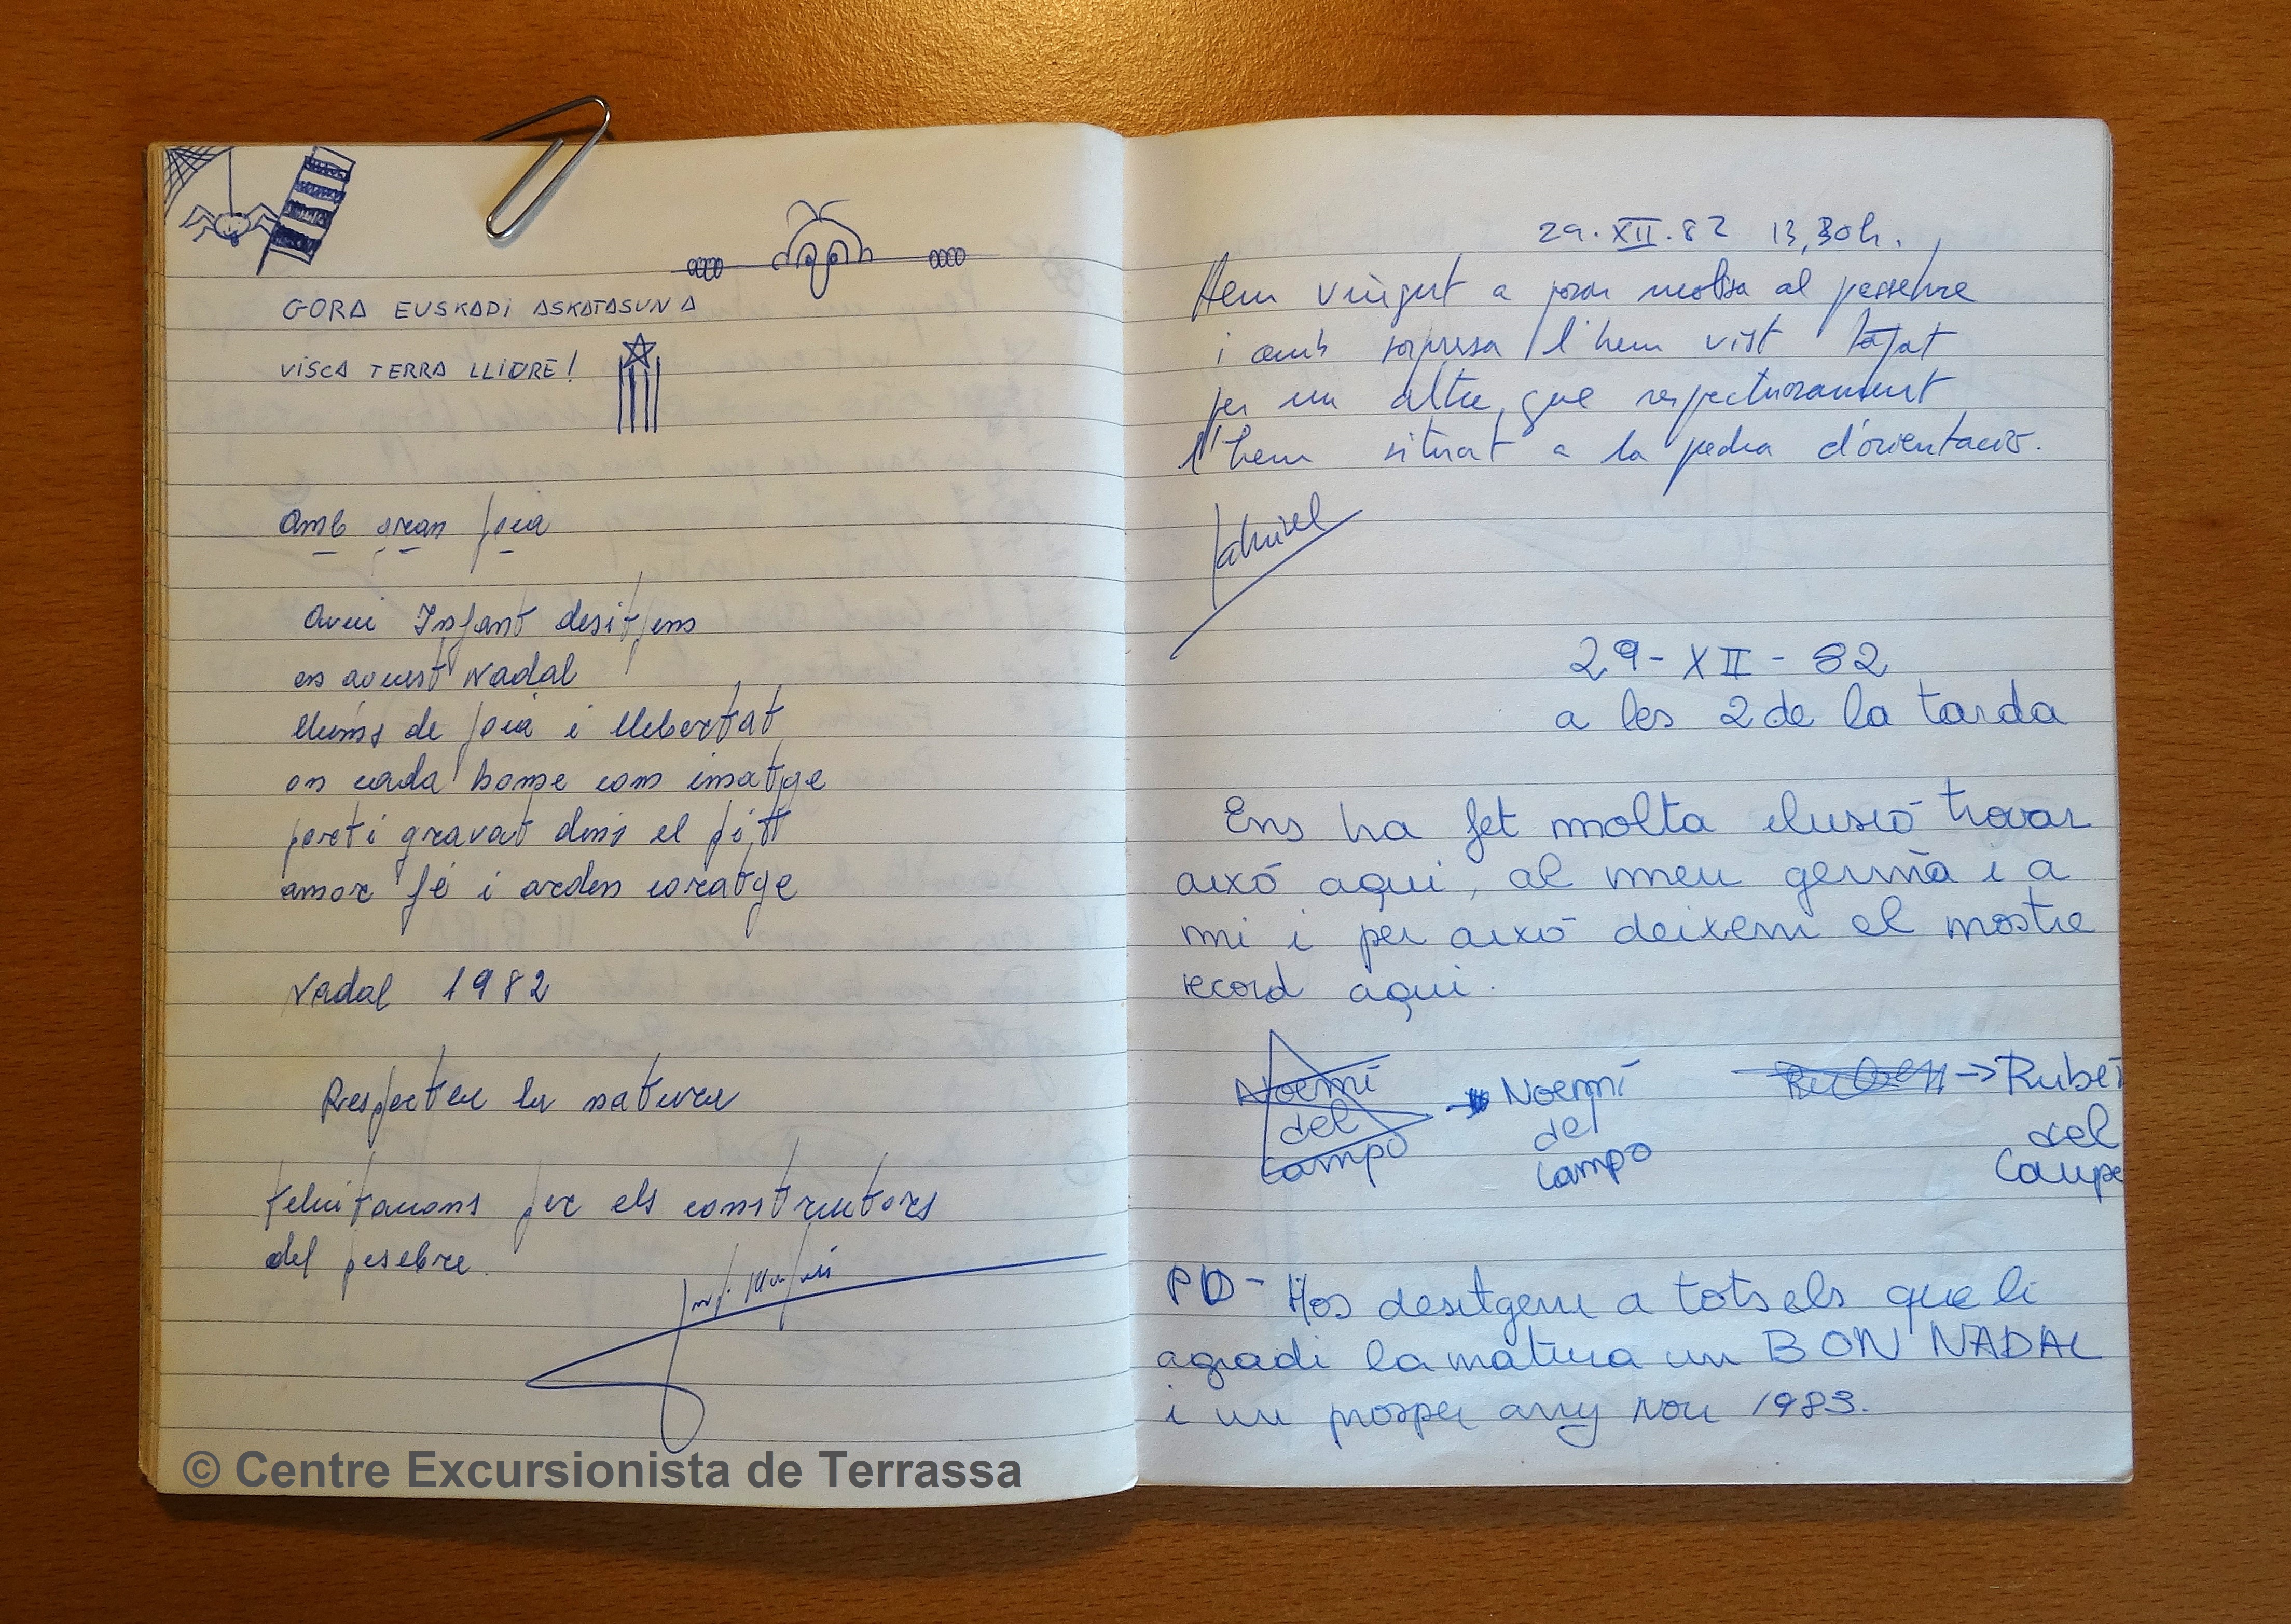 GORA EUSKADI ASKATASUNA
VISCA TERRA LLIURE!
Amb gran joia
Avui Infant desitjem
en aquest Nadal
llums de joia i llibertat
on cada home com imatge
porti gravat dins el pit
amor fé i ardon coratge
Nadal 1982
Respecteu la natura
felicitacions per els constructors
del pesebre.
29.XII.82 13,30h.
Hem vingut a posar molsa al pessebre
i amb sorpresa l'hem vist tapat
per un altre, que respectuosament
l'hem situat a la pedra d'orientació.
29-XII-82
a les 2 de la tarda
Ens ha fet molta ilusió trovar
aixó aqui, al meu germà i a
mi i per aixó deixem el nostre
record aqui.
Noemí
del
Campo
→ Noemí
del
Campo
Ruben → Rubén
del
Campo
PD- Hos desitgem a tots els que li
agradi la natura un BON NADAL
i un prosper any nou 1983.
© Centre Excursionista de Terrassa